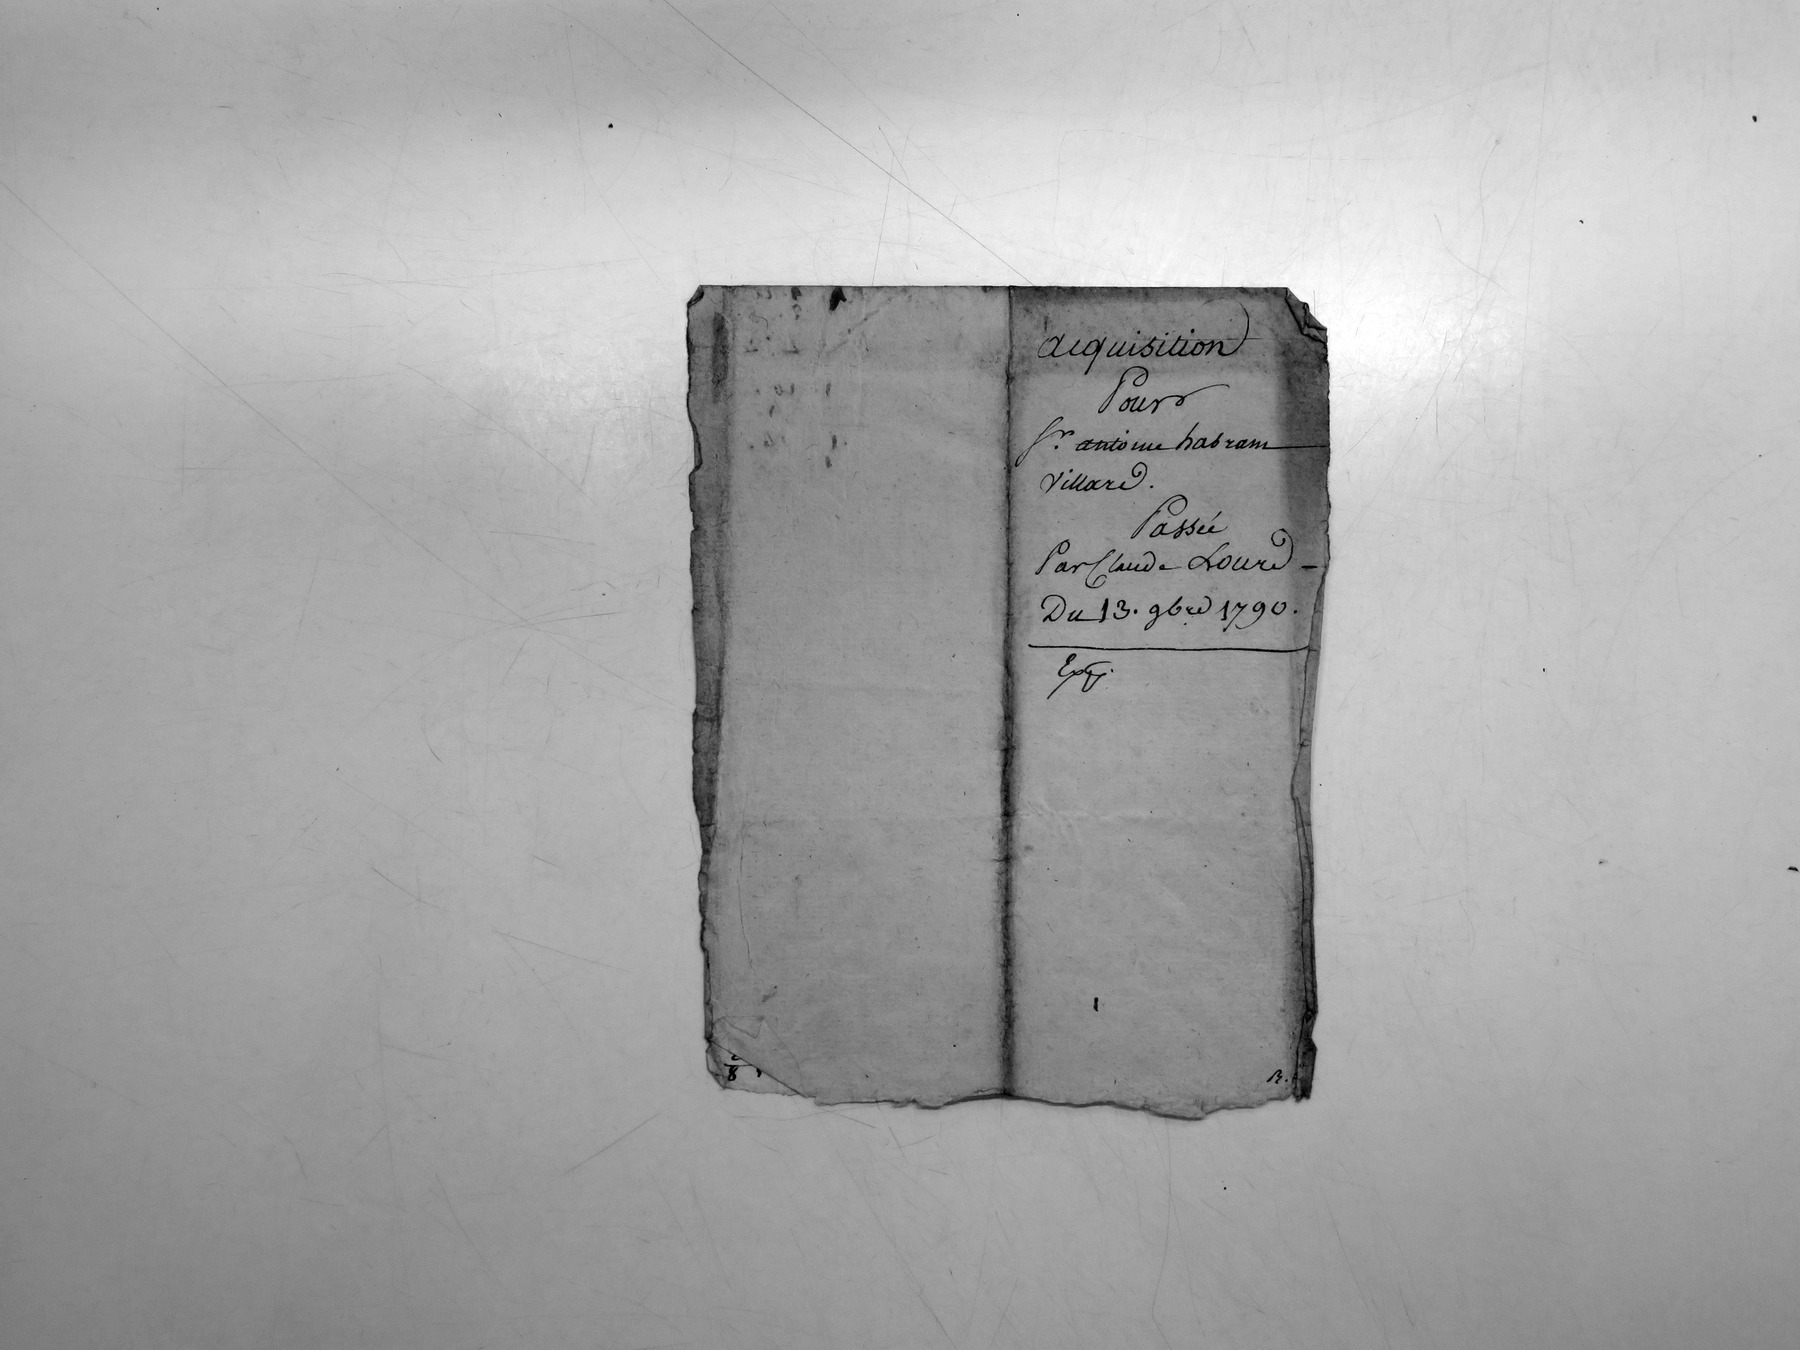 acquisition
Pour
Sr. antoine habram
Villard.
Passée
Par Claude Lourd -
Du 13. 9bre 1790.
Exp
8
R.